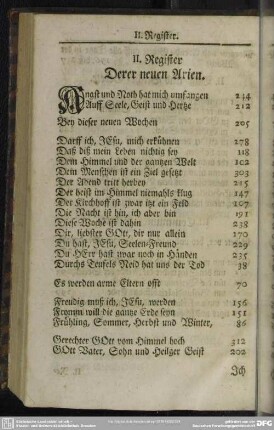 II. Register.
II. Register
Derer neuen Arien.
Angst und Noth hat mich umfangen 234
Auff Seele, Geist und Hertze 212
Bey dieser neuen Wochen 205
Darff ich, JEsu, mich erkühnen 278
Daß diß mein Leben nichtig sey 118
Dem Himmel und der gantzen Welt 102
Dem Menschen ist ein Ziel gesetzt 303
Der Abend tritt herbey 215
Der heist im Himmel niemahls klug 147
Der Kirchhoff ist zwar itzt ein Feld 107
Die Nacht ist hin, ich aber bin 191
Diese Woche ist dahin 238
Dir, liebster GOtt, dir nur allein 170
Du hast, JEsu, Seelen-Freund 229
Du HErr hast zwar noch in Händen 235
Durchs Teufels Neid hat uns der Tod 38
Es werden arme Eltern offt 70
Freudig muß ich, JEsu, werden 156
Fromm will die gantze Erde seyn 151
Frühling, Sommer, Herbst und Winter, 86
Gerechter GOtt vom Himmel hoch 312
GOtt Vater, Sohn und Heilger Geist 202
Ich